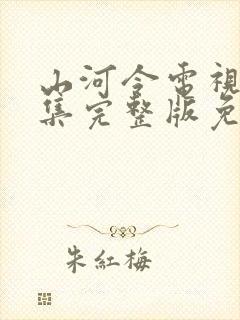 山河令電視
集完整版免
朱紅梅